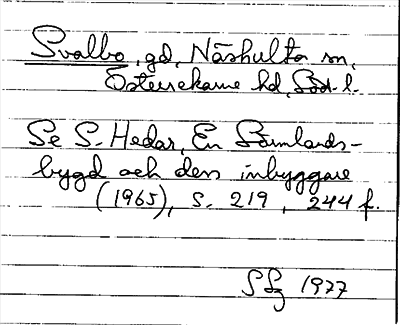 Svalbo, gd, Näshulta sn,
Österrekarne hd, Söd. l.
Se S. Hedar, En Sörmlands-
bygd och dess inbyggare
(1965), s. 219, 244 f.
1977